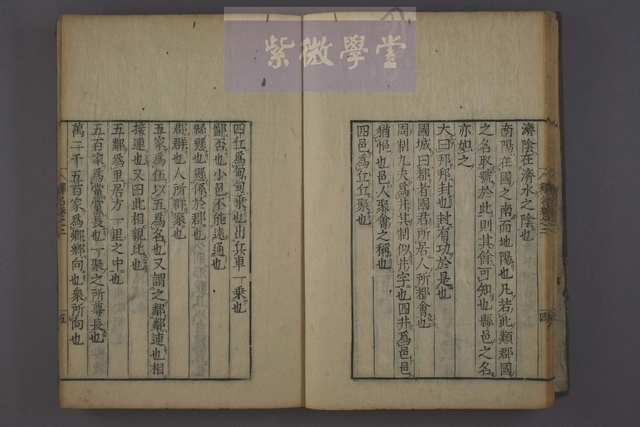 紫微學堂
濟陰在濟水之陰也
南陽在國之南而地陽也凡若此類郡國
之名取號於此則其餘可知也縣邑之名
亦如之
大曰邦邦封也封有功於是也
國城曰都者國君所居人所都會也
周制九夫爲井其制似井字也四井爲邑邑
猶悒也邑人聚會之稱也
四邑爲丘丘聚也
四丘爲甸甸乘也出兵車一乘也
鄙否也小邑不能遠通也
縣懸也懸係於郡也
郡群也人所群聚也
五家爲伍以五爲名也又謂之鄰鄰連也相
接連也又曰比相親比也
五鄰爲里居方一里之中也
五百家爲黨黨長也一聚之所尊長也
萬二千五百家爲鄉鄉向也衆所向也